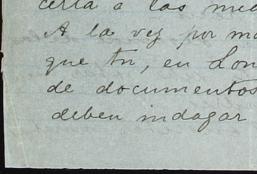 cerla a las me
A la vez por m
que tu, en Lon
de documentos
deben indagar